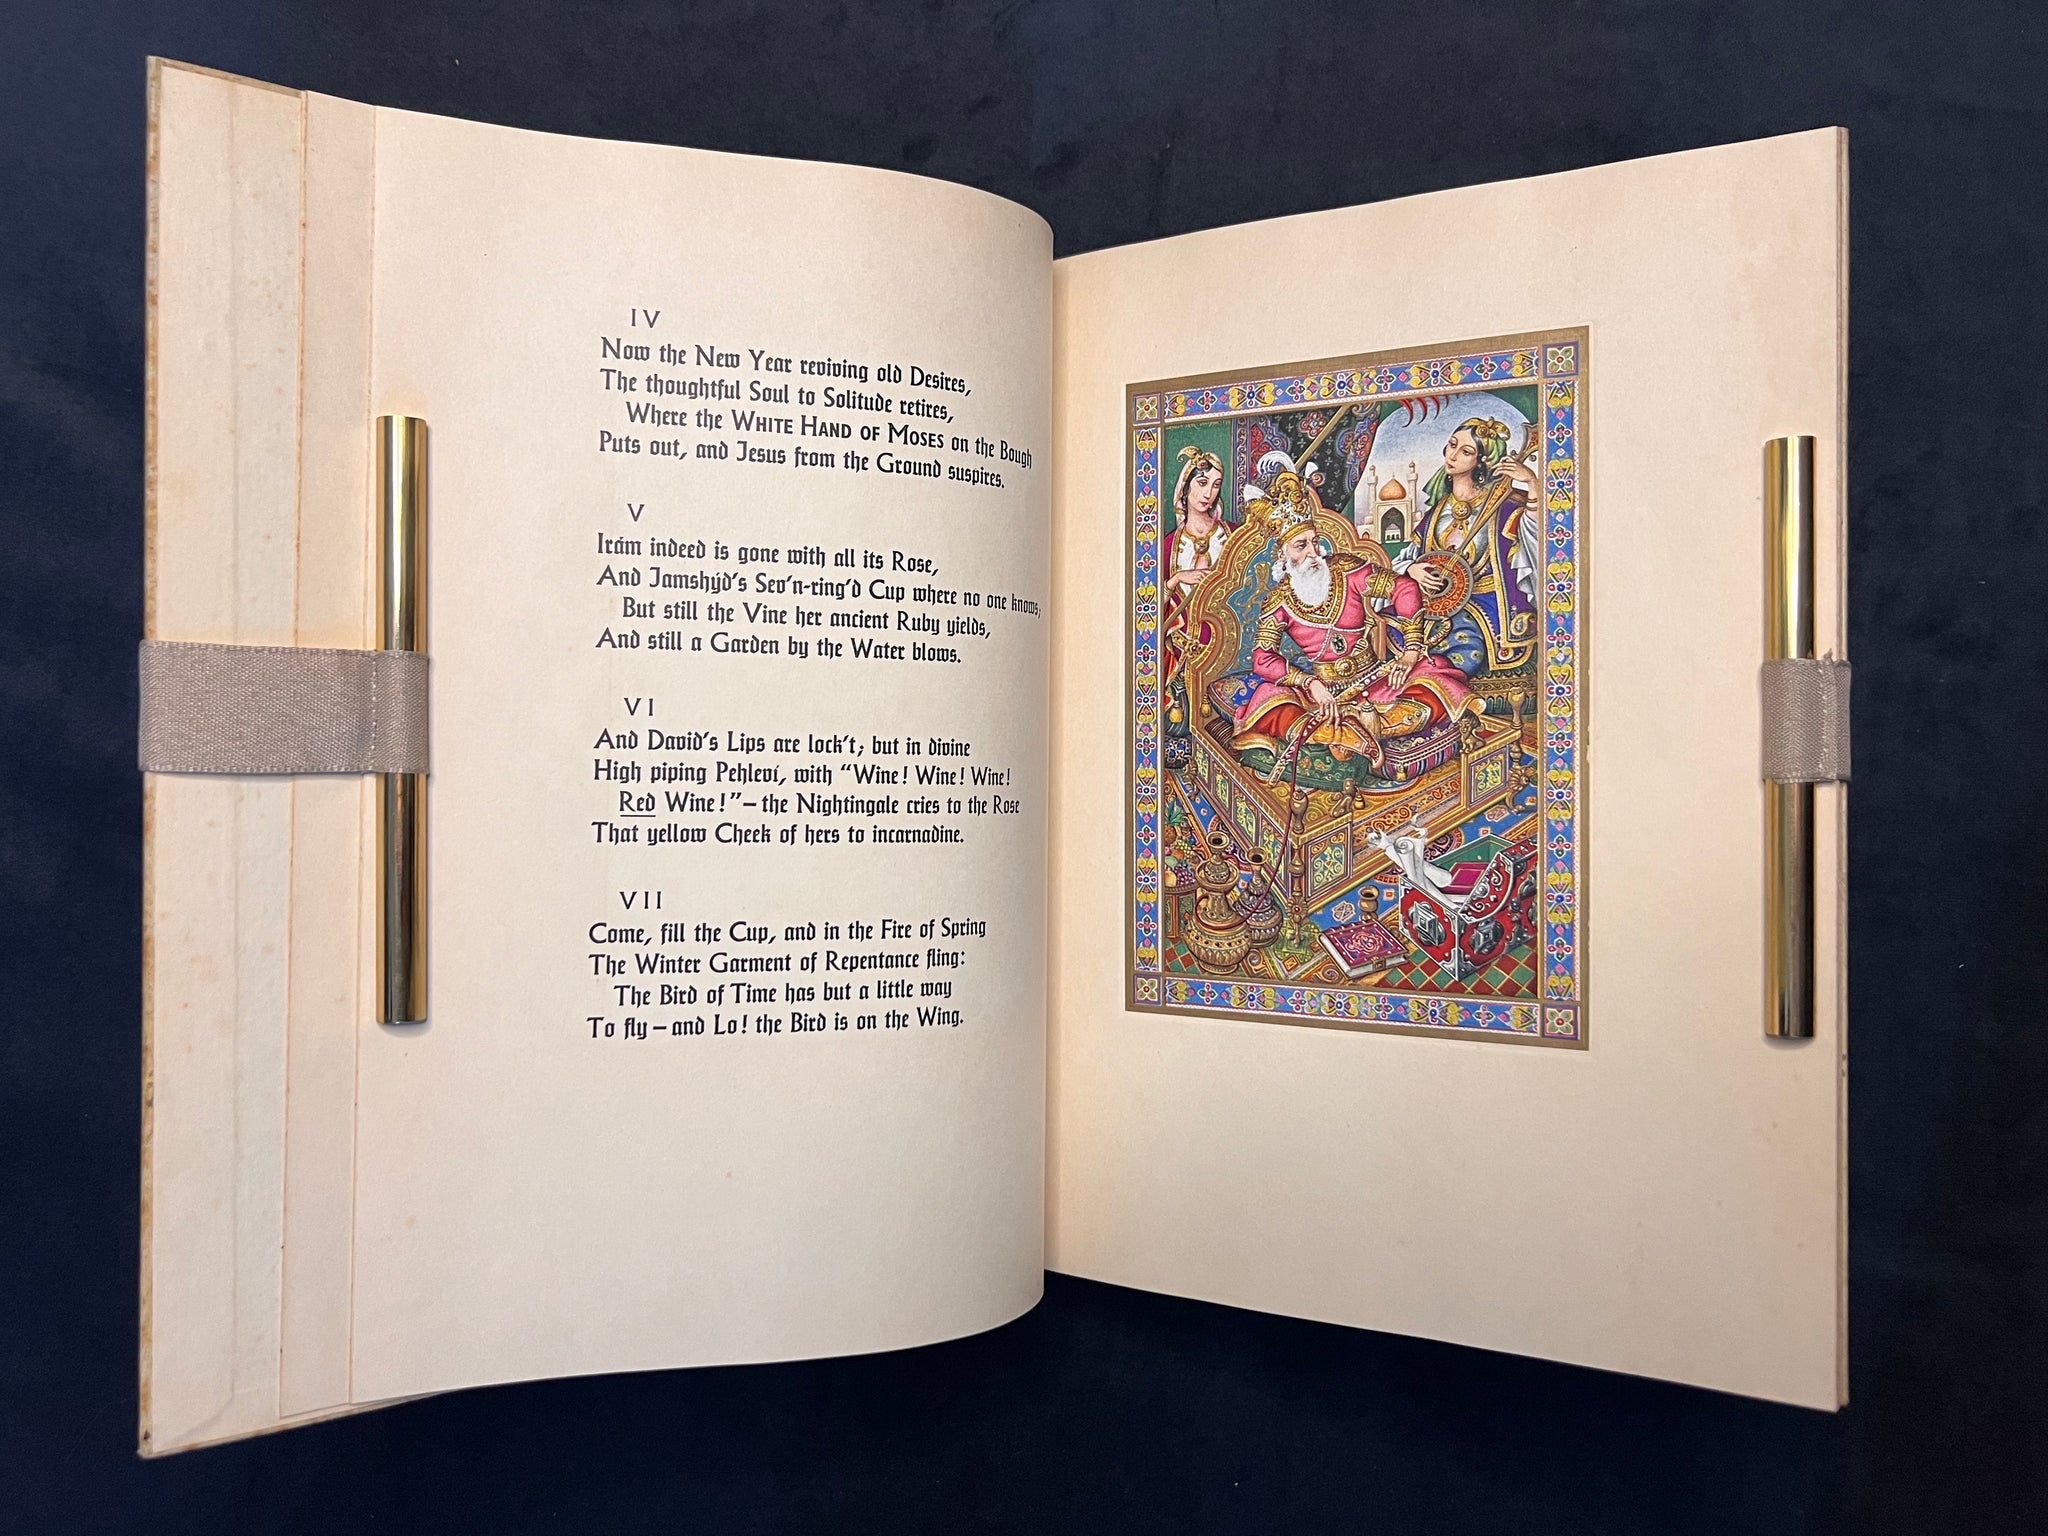 IV
Now the New Year reviving old Desires,
The thoughtful Soul to Solitude retires,
Where the WHITE HAND OF MOSES on the Bough
Puts out, and Jesus from the Ground suspires.
V
Irám indeed is gone with all its Rose,
And Jamshýd's Sev'n-ring'd Cup where no one knows;
But still the Vine her ancient Ruby yields,
And still a Garden by the Water blows.
VI
And David's Lips are lock't; but in divine
High piping Pehleví, with "Wine! Wine! Wine!
Red Wine!"—the Nightingale cries to the Rose
That yellow Cheek of hers to incarnadine.
VII
Come, fill the Cup, and in the Fire of Spring
The Winter Garment of Repentance fling:
The Bird of Time has but a little way
To fly—and Lo! the Bird is on the Wing.